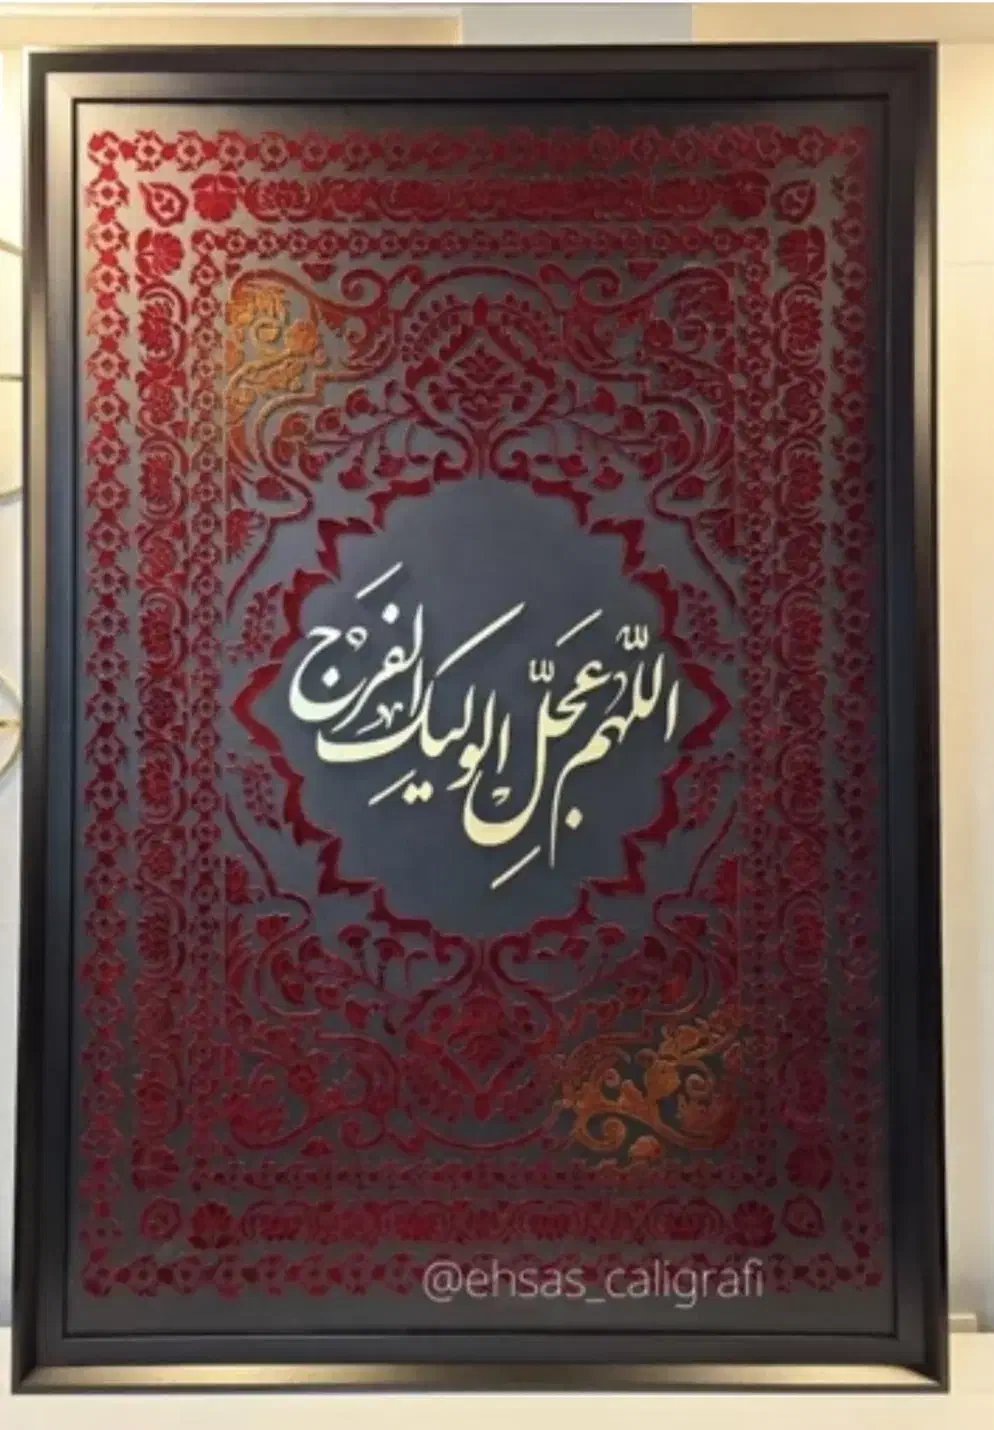 اللّهم عجّل لوليك الفرج
@ehsas_caligrafi